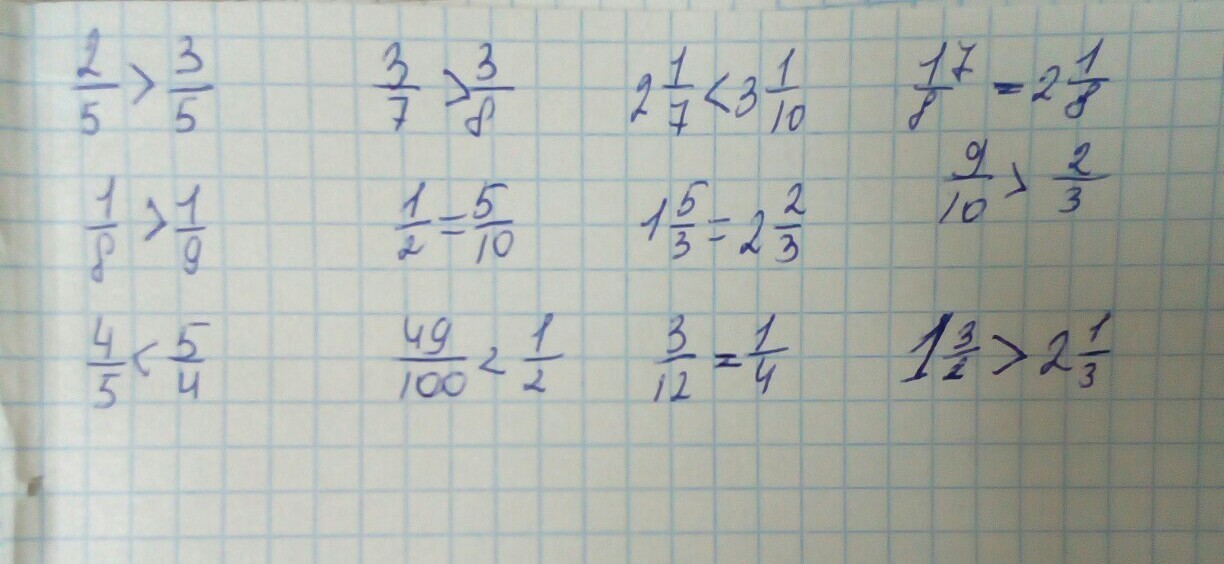 2/5 > 3/5   3/7 > 3/8   2 1/7 < 3 1/10   17/8 = 2 1/8
1/8 > 1/9   1/2 = 5/10   1 5/3 = 2 2/3   9/10 > 2/3
4/5 < 5/4   49/100 < 1/2   3/12 = 1/4   1 3/2 > 2 1/3